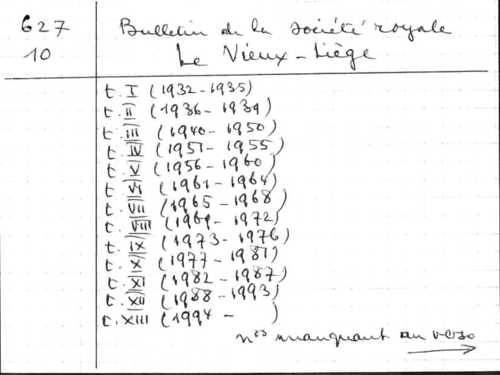 627 Bulletin de la société royale
10 Le Vieux-Liège
t. I (1932-1935)
t. II (1936-1939)
t. III (1940-1950)
t. IV (1951-1955)
t. V (1956-1960)
t. VI (1961-1964)
t. VII (1965-1968)
t. VIII (1969-1972)
t. IX (1973-1976)
t. X (1977-1981)
t. XI (1982-1987)
t. XII (1988-1993)
t. XIII (1994- )
nos manquant au verso